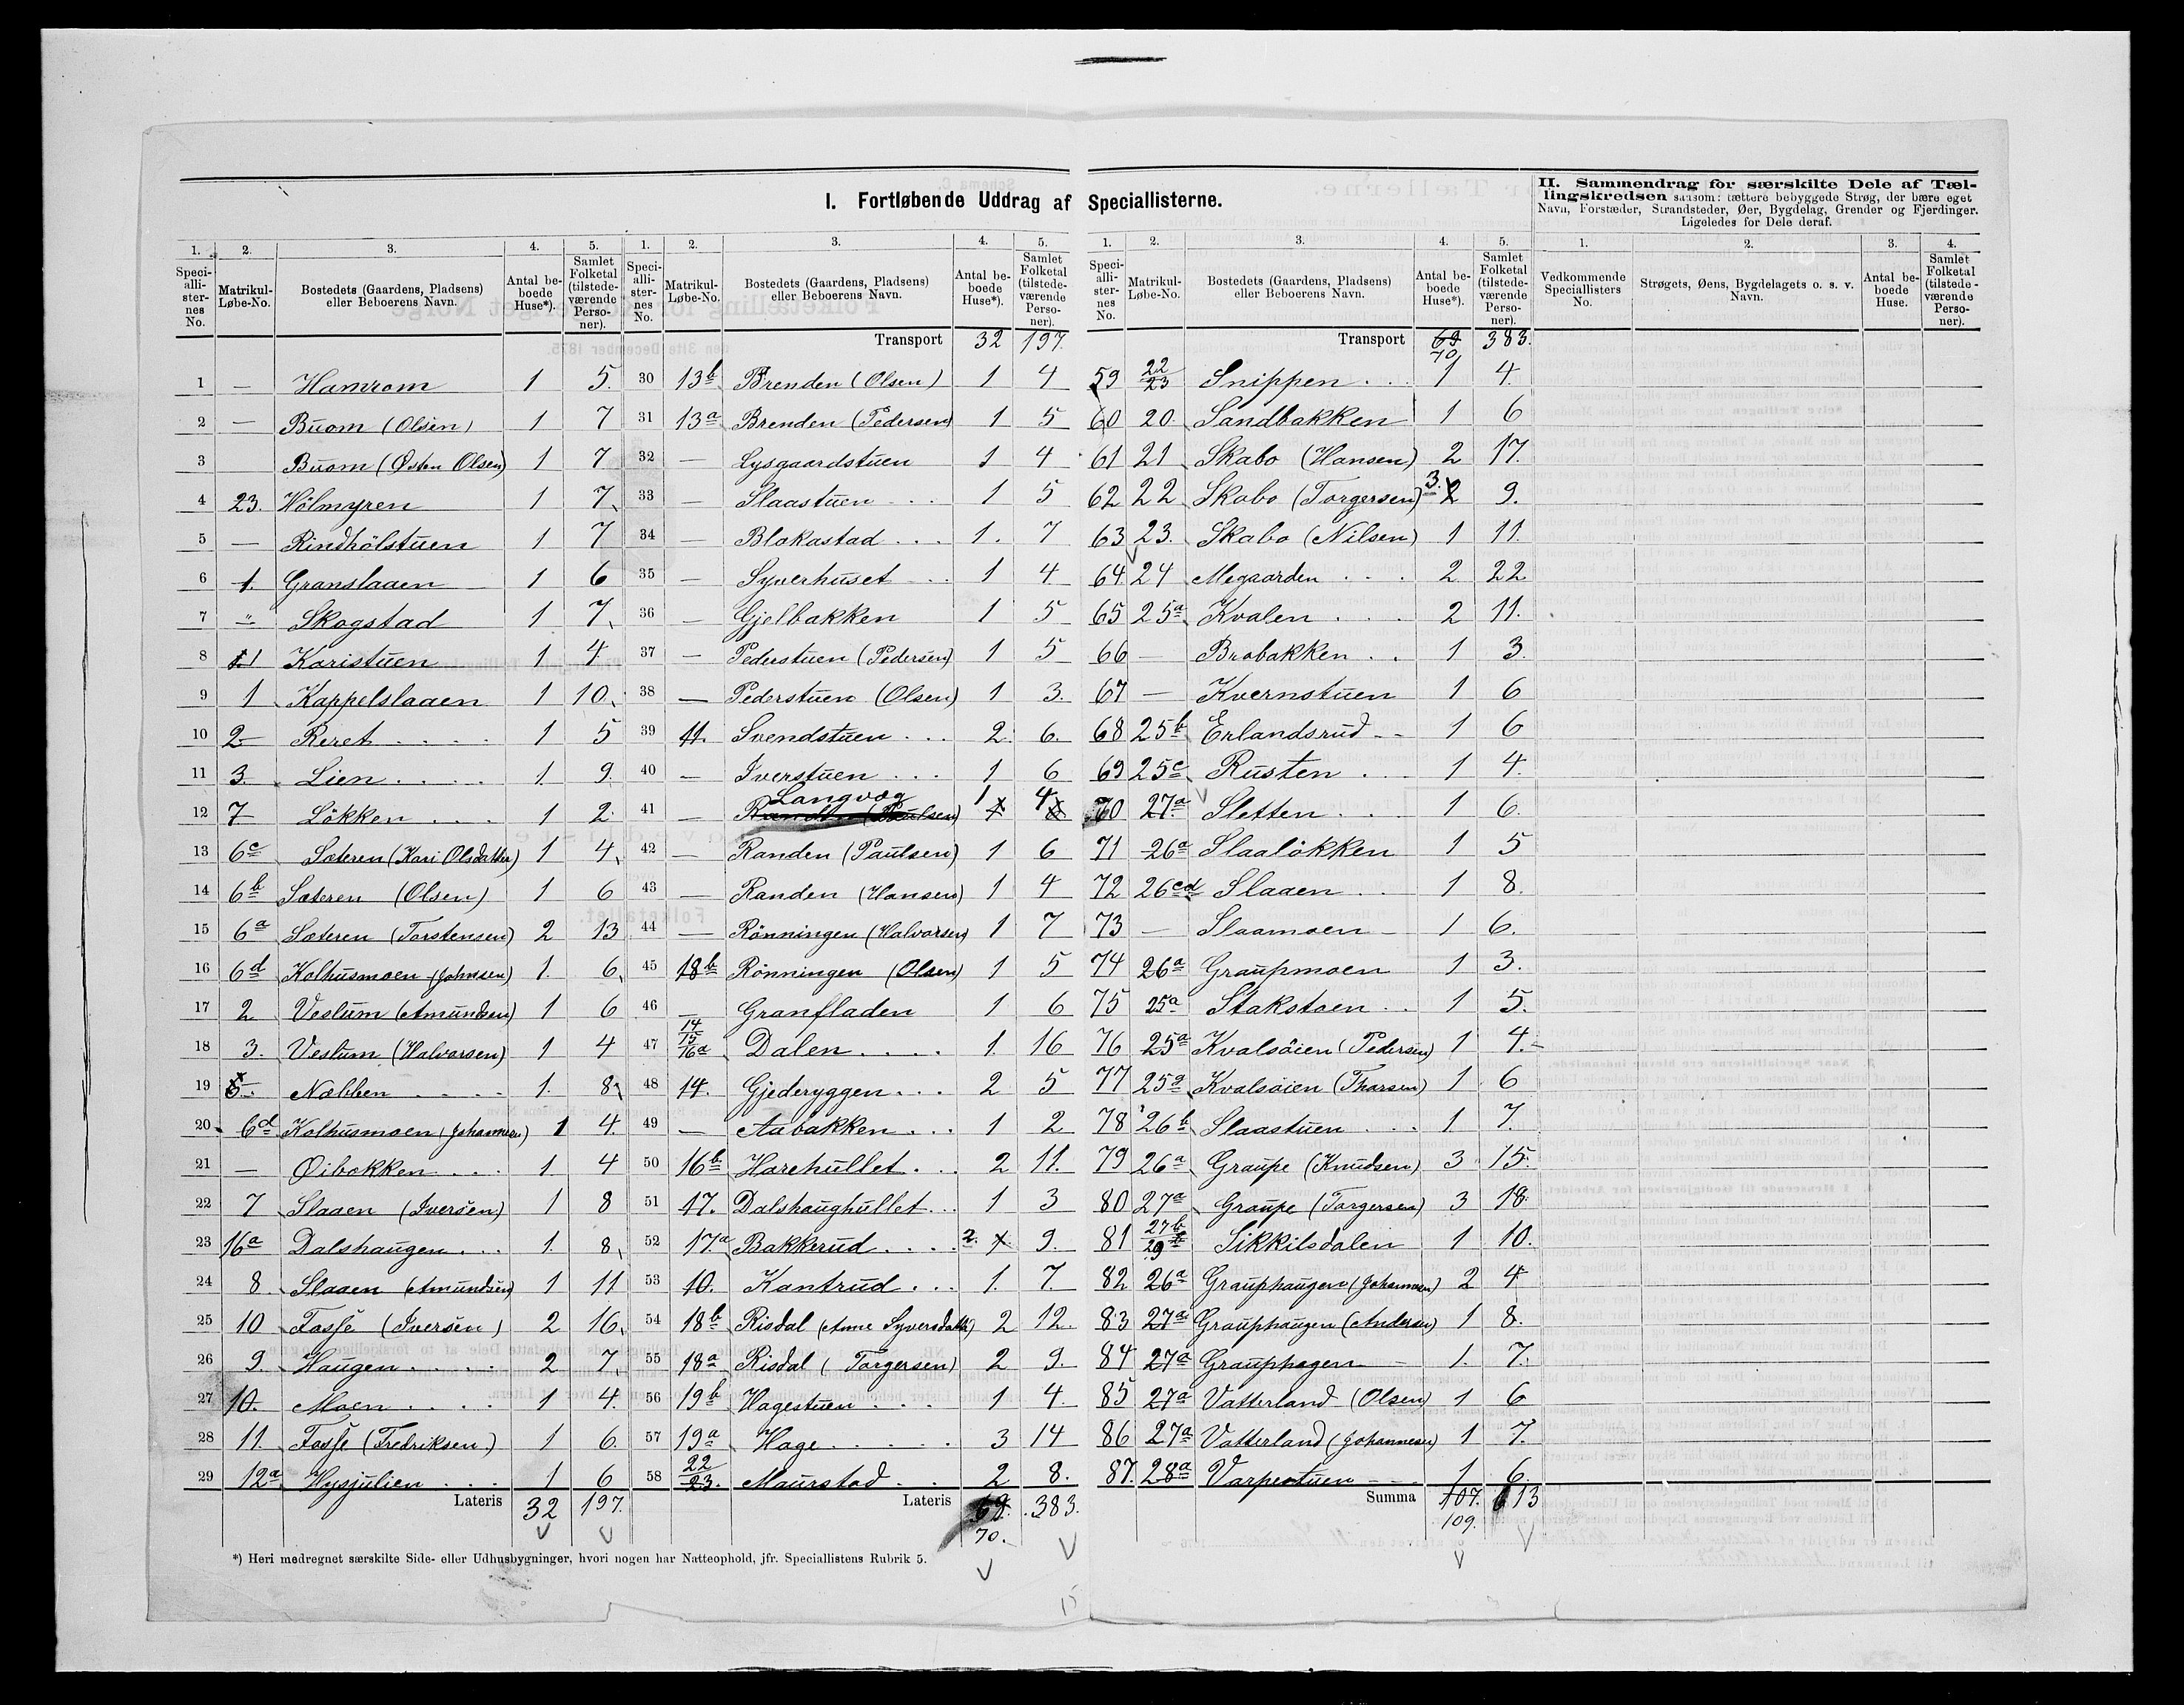 I. Fortløbende Uddrag af Speciallisterne.
1. 2. 3. 4. 5.
Speciallisternes No. Matrikul-Løbe-No. Bostedets (Gaardens, Pladsens) eller Beboerens Navn. Antal beboede Huse*). Samlet Folketal (tilstedeværende Personer).
1 — Hamrom 1 5.
2 — Buom (Olsen) 1 7
3 Buom (Østen Olsen) 1 7
4 23. Hölmyren 1 7
5 — Rindhölstuen 1 7
6 1. Granslaaen 1 6
7 " Skogstad 1 7
8 1 Karistuen 1 4
9 1 Kappelslaaen 1 10.
10 2 Reret .... 1 5
11 3. Lien .... 1. 9.
12 7 Lökken ... 1 2.
13 6c Sæteren (Kari Olsdatter) 1 4
14 6b Sæteren (Olsen) 1 6
15 6a Sæteren (Torstensen) 2 13
16 6d Kolhusmoen (Johnsen) 1. 6
17 2 Veslum (Amundsen) 1 6
18 3. Veslum (Halvorsen) 1 4
19 Næbben .... 1. 8
20 6d Kolhusmoen (Johannesen) 1 4.
21 — Øibakken ... 1. 4
22 7 Slaaen (Iversen) 1 8
23 16a Dalshaugen ... 1. 8
24 8 Slaaen (Amundsen) 1 11
25 10 Fosse (Iversen) 2 16
26 9. Haugen .... 2 7
27 10. Moen .... 1 4.
28 11. Fosse (Fredriksen.) 1 6.
29 12a Hysjulien ... 1 6
Lateris 32 197.
1. 2. 3. 4. 5.
Speciallisternes No. Matrikul-Løbe-No. Bostedets (Gaardens, Pladsens) eller Beboerens Navn. Antal beboede Huse*). Samlet Folketal (tilstedeværende Personer).
Transport 32 197.
30 13b Brenden (Olsen) 1 4
31 13a Brenden (Pedersen) 1 5
32 — Lysgaardstuen 1 4
33 — Slaastuen .. 1 5
34 — Blakastad ... 1. 7
35 — Syverhuset .. 1 4
36 — Gjelbakken 1 5
37 — Pederstuen (Pedersen) 1 5
38 — Pederstuen (Olsen) 1 3.
39 11. Svendstuen ... 2. 6.
40 — Iverstuen ... 1 6
41 — Langvog 1 4
42 — Randen (Paulsen) 1 6
43 — Randen (Hansen) 1 4
44 — Rönningen (Halvorsen) 1 7
45 18b Rönningen (Olsen) 1 5
46 — Granfladen 1 6
47 14 15 16a Dalen .... 1. 16
48 14. Gjederyggen ... 2 5
49 — Aabakken ... 1 2
50 16b Harehullet ... 2 11.
51 17. Dalshaughullet .. 1 3
52 17a Bakkerud .... 2. 9.
53 10. Kantrud ... 1. 7.
54 18b Risdal (Anne Syversdatter) 2 12.
55 18a Risdal (Torgersen) 2 9.
56 19b Hagestuen ... 1 4.
57 19a Hage ..... 3 14
58 22 23. Maurstad .. 2 8.
Lateris 69. 383.
70.
*) Heri medregnet særskilte Side- eller Udhusbygninger, hvori nogen har Natteophold, jfr. Speciallistens Rubrik 5.
1. 2. 3. 4. 5.
Speciallisternes No. Matrikul-Løbe-No. Bostedets (Gaardens, Pladsens) eller Beboerens Navn. Antal beboede Huse*). Samlet Folketal (tilstedeværende Personer).
Transport 69 383.
70
59 22 23 Snippen ... 1 4.
60 20. Sandbakken 1 6
61 21 Skabo (Hansen) 2 17.
62 22 Skabo (Torgersen) 3. 2 9.
63 23. Skabo (Nilsen) 1 11.
64 24 Megaarden ... 2 22
65 25a Kvalen ... 2 11.
66 — Brobakken .. 1 3.
67 — Kvernstuen 1 6
68 25b Erlandsrud -- 1 6
69 25c Rusten .. 1 4.
70 27a Sletten ... 1 6.
71 26a Slaalökken 1 5
72 26cd Slaaen .. 1 8.
73 — Slaamoen - 1 6.
74 26a Graupmoen 1 3.
75 25a Stakstoen .. 1 5.
76 25a Kvalsöien (Pedersen) 1 4.
77 25a Kvalsöien (Thorsen) 1 6
78 26b Slaastuen ... 1 7.
79 26a Graupe (Knudsen) 3 15.
80 27a Graupe (Torgersen) 3 18.
81 27b 29b Sikkilsdalen 1 10.
82 26a Grauphaugen (Johannesen) 2 4
83 27a Grauphaugen (Andersen) 1 8.
84 27a Grauphagen 1. 7.
85 27a Vatterland (Olsen) 1 6
86 27a Vatterland (Johannesen) 1 7.
87. 28a Varpestuen 1 6.
Summa 107. 613
109.
II. Sammendrag for særskilte Dele af Tællingskredsen saasom: tættere bebyggede Strøg, der bære eget
Navn, Forstæder, Strandsteder, Øer, Bygdelag, Grender og Fjerdinger.
Ligeledes for Dele deraf.
1. 2. 3. 4.
Vedkommende Speciallisters No. Strøgets, Øens, Bygdelagets o. s. v. Navn. Antal beboede Huse. Samlet Folketal (tilstedeværende Personer).